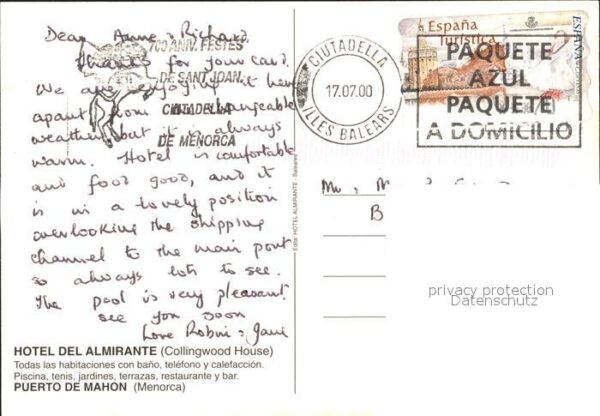 Dear Anne & Richard,
Thanks for your card.
We are enjoying it here
apart from changeable
weather but it is always
warm. Hotel is comfortable
and food good, and it
is in a lovely position
overlooking the shipping
channel to the main port
so always lots to see.
The pool is very pleasant
see you soon
Love Robin & Jane
HOTEL DEL ALMIRANTE (Collingwood House)
Todas las habitaciones con baño, teléfono y calefacción.
Piscina, tenis, jardines, terrazas, restaurante y bar.
PUERTO DE MAHON (Menorca)
700 ANIV. FESTES
DE SANT JOAN
CIUTADELLA
DE MENORCA
Edita: HOTEL ALMIRANTE - Baleares
CIUTADELLA
17.07.00
ILLES BALEARS
España
Turística
ESPAÑA
PAQUETE
AZUL
PAQUETE
A DOMICILIO
B
privacy protection
Datenschutz